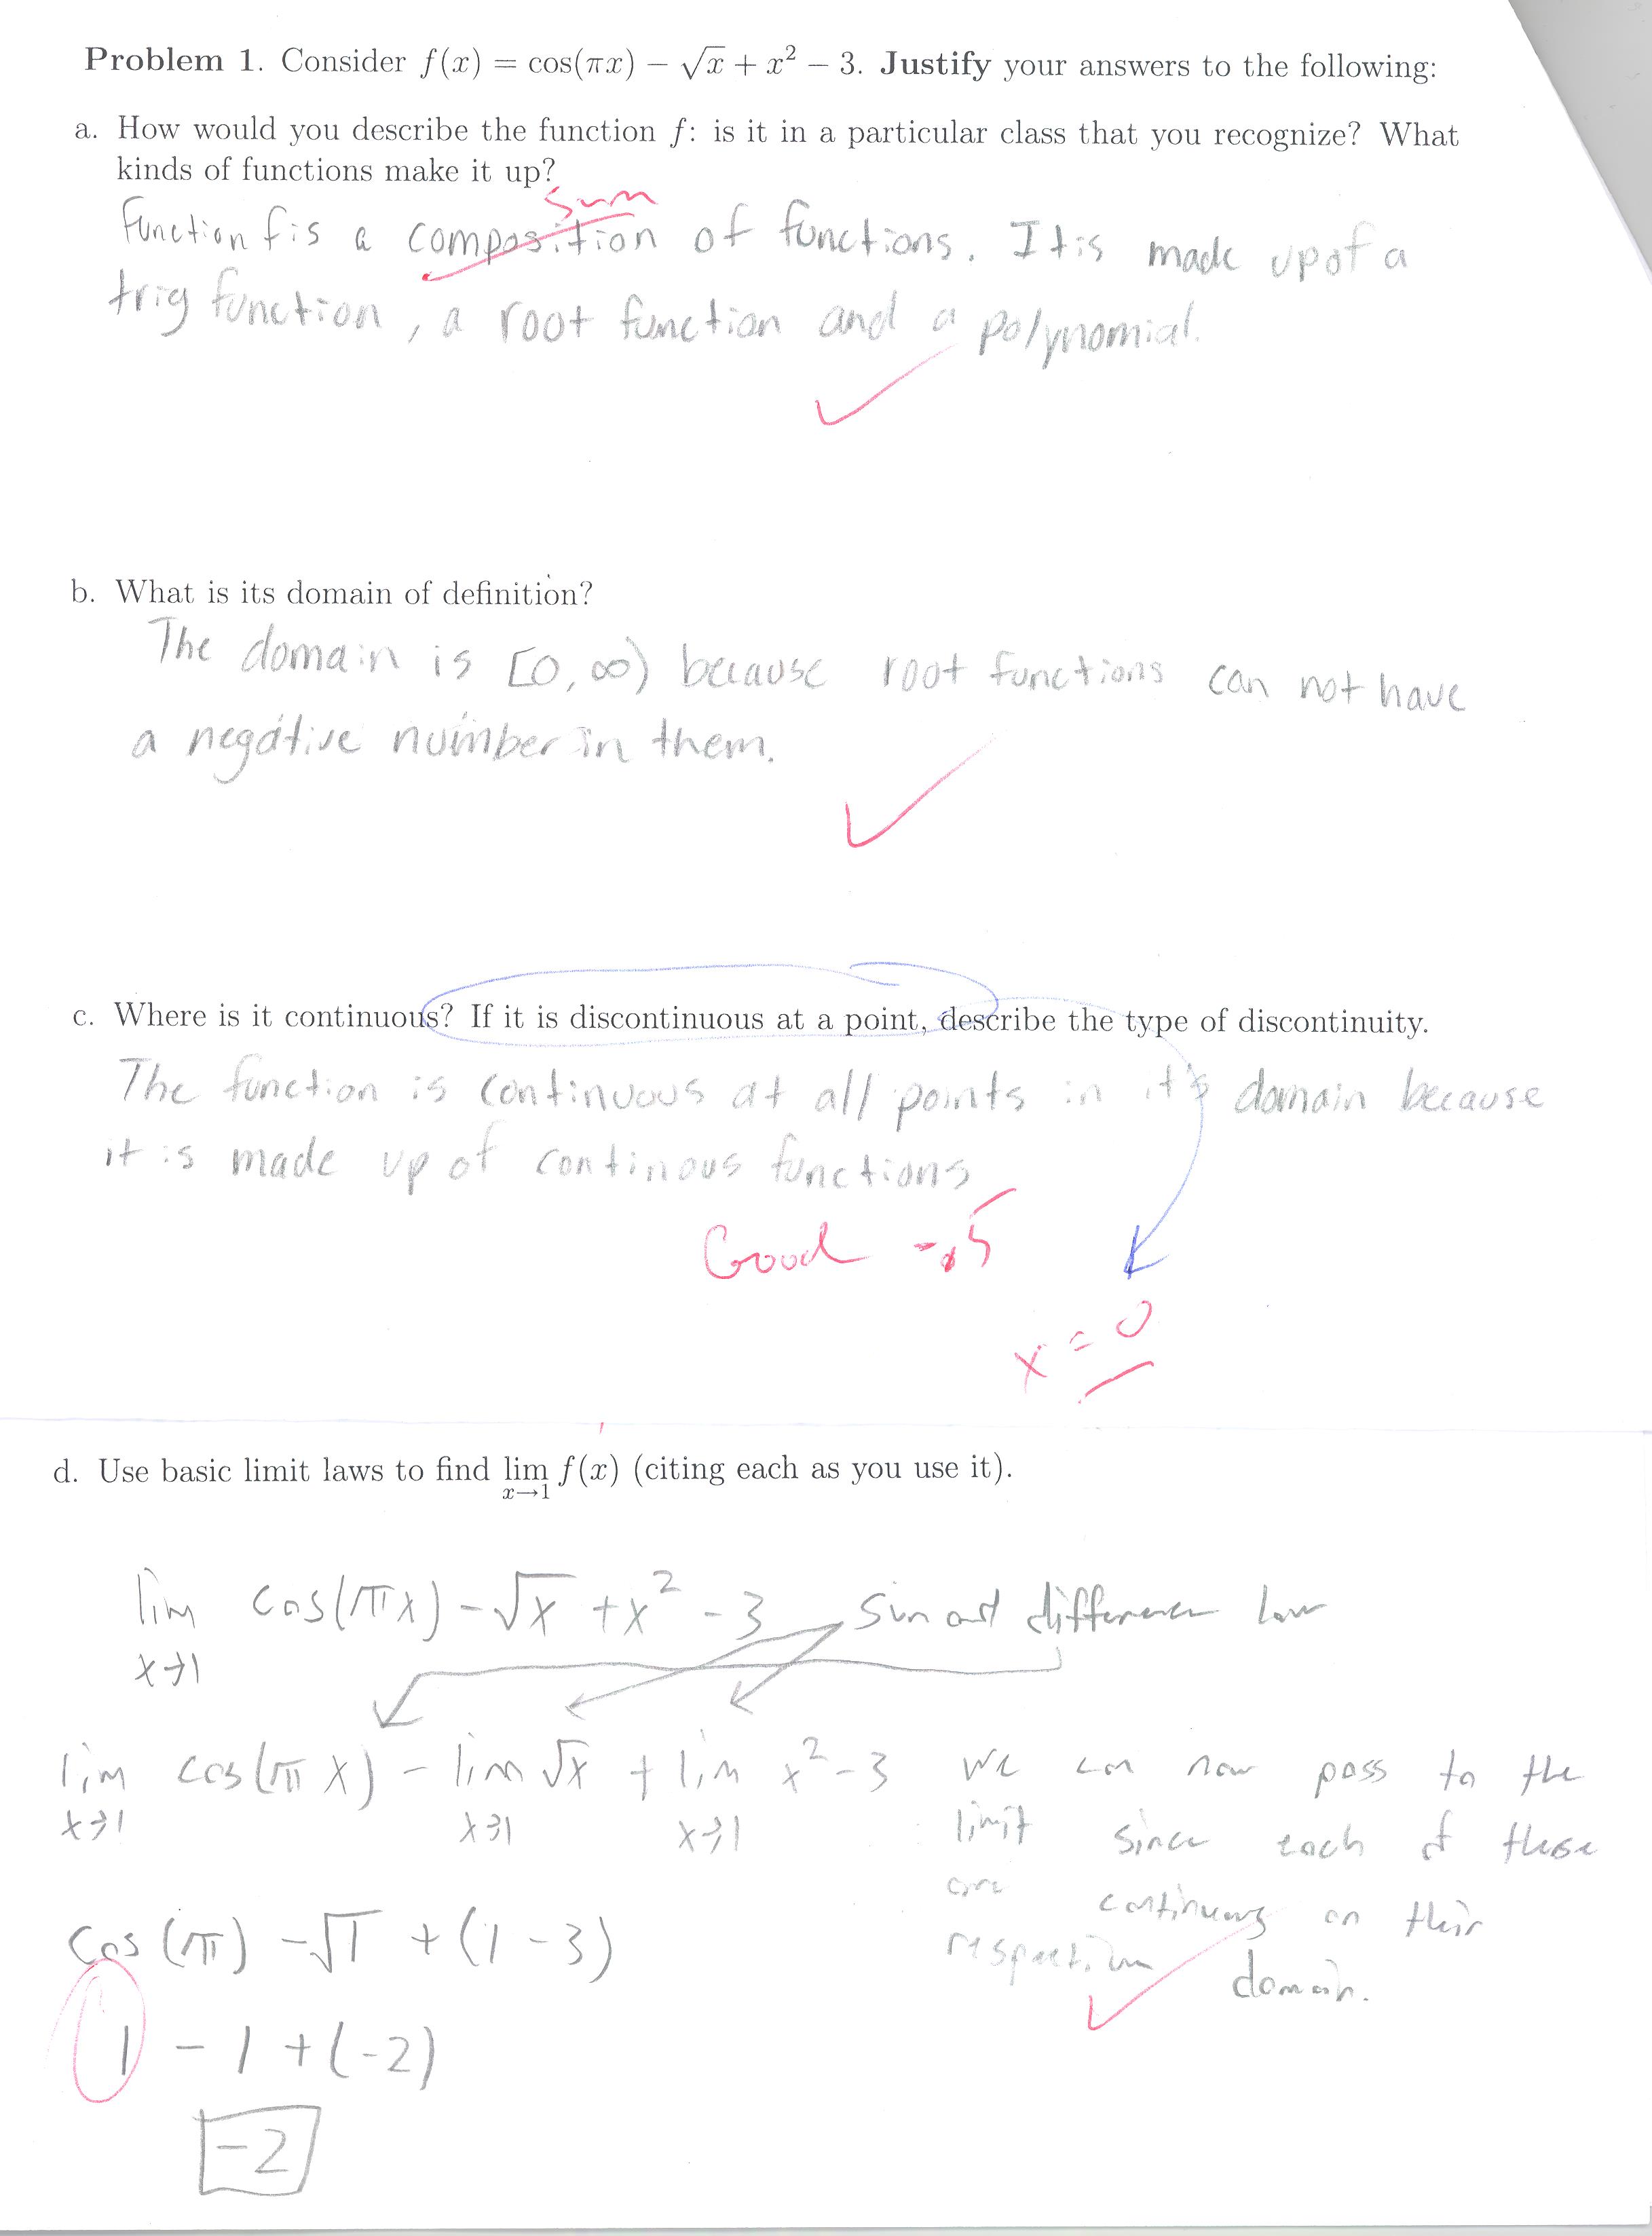 Problem 1. Consider f(x) = cos(πx) − √x + x² − 3. Justify your answers to the following:
a. How would you describe the function f: is it in a particular class that you recognize? What
kinds of functions make it up?
Sum
Function f is a composition of functions. It is made up of a
trig function, a root function and a polynomial.
b. What is its domain of definition?
The domain is [0, ∞) because root functions can not have
a negative number in them.
c. Where is it continuous? If it is discontinuous at a point, describe the type of discontinuity.
The function is continuous at all points in it's domain because
it is made up of continous functions
Good -.5
x = 0
d. Use basic limit laws to find lim f(x) (citing each as you use it).
x→1
lim cos(πx) - √x + x² - 3 Sum and difference law
x→1
lim cos(πx) - lim √x + lim x² - 3 We can now pass to the
x→1 x→1 x→1 limit since each of these
are continuous on their
cos(π) - √1 + (1 - 3) respective domain.
1 - 1 + (-2)
-2